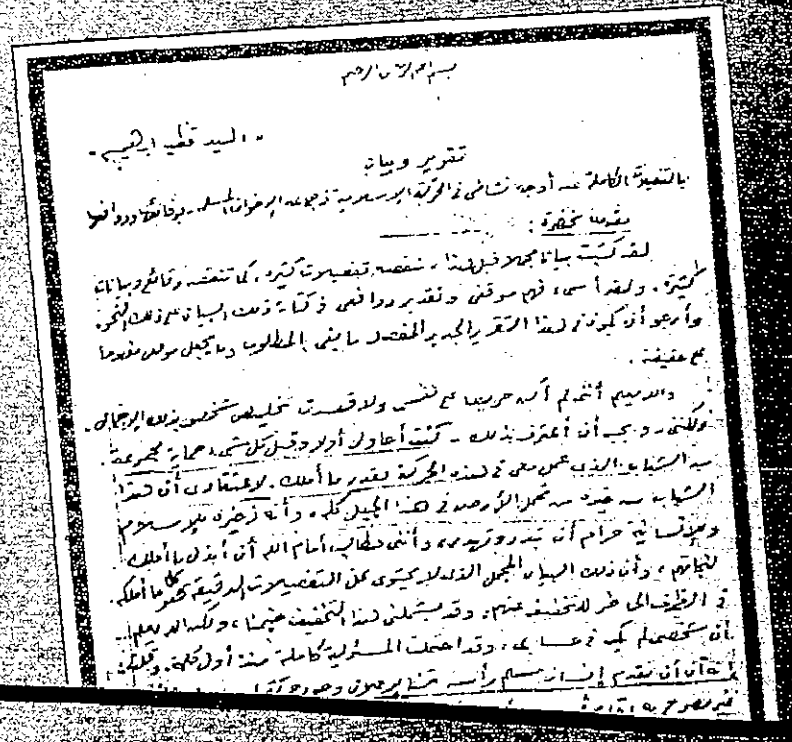 بسم الله الرحمن الرحيم
- السيد قطب ابراهيم -
تقرير وبيان
بالتفصيلات الكاملة عن أوجه نشاطى فى الحركة الإسلامية وجماعة الإخوان المسلمين بوقائعها ودوافعها
مقدمة مختصرة :
لقد كتبت بيانا مجملا قبل هذا ، تنقصه تفصيلات كثيرة ، كما تنقصه وقائع وبيانات
كثيرة . ولقد أسىء فهم موقفى وتقدير دوافعى فى كتابة ذلك البيان على ذلك النحو
وأرجو أن يكون فى هذا التقرير الجديد المفصل ما يفى بالمطلوب وما يجعل موقفى مفهوما
على حقيقته .
والله يعلم أننى لم أكن حريصا على نفسى ولا قصدت تخليص شخصى بذلك الإجمال .
ولكننى - ويجب أن أعترف بذلك - كنت أحاول أولا وقبل كل شىء حماية مجموعة
من الشباب الذى عمل معى فى هذه الحركة بقدر ما أملك . لاعتقادى أن هذا
الشباب من خيرة من تحمل الأرض فى هذا الجيل كله . وأنه ذخيرة للإسلام
وللإنسانية حرام أن تبدد وتهدر ، وأننى مطالب أمام الله أن أبذل ما أملك
لنجاتهم ، وأن ذلك البيان المجمل الذى لا يحتوى كل التفصيلات الدقيقة هو كل ما أملكه
فى الظرف الحاضر للتخفيف عنهم . وقد يشملنى هذا التخفيف ضمنا ، ولكن الله يعلم
أن شخصى لم يكن فى حسابى . وقد احتملت المسئولية كاملة منذ أول كلمة . وقلت :
إنه آن أن يقدم إنسان مسلم رأسه ثمنا لإعلان وجود حركة
غير مصرح به